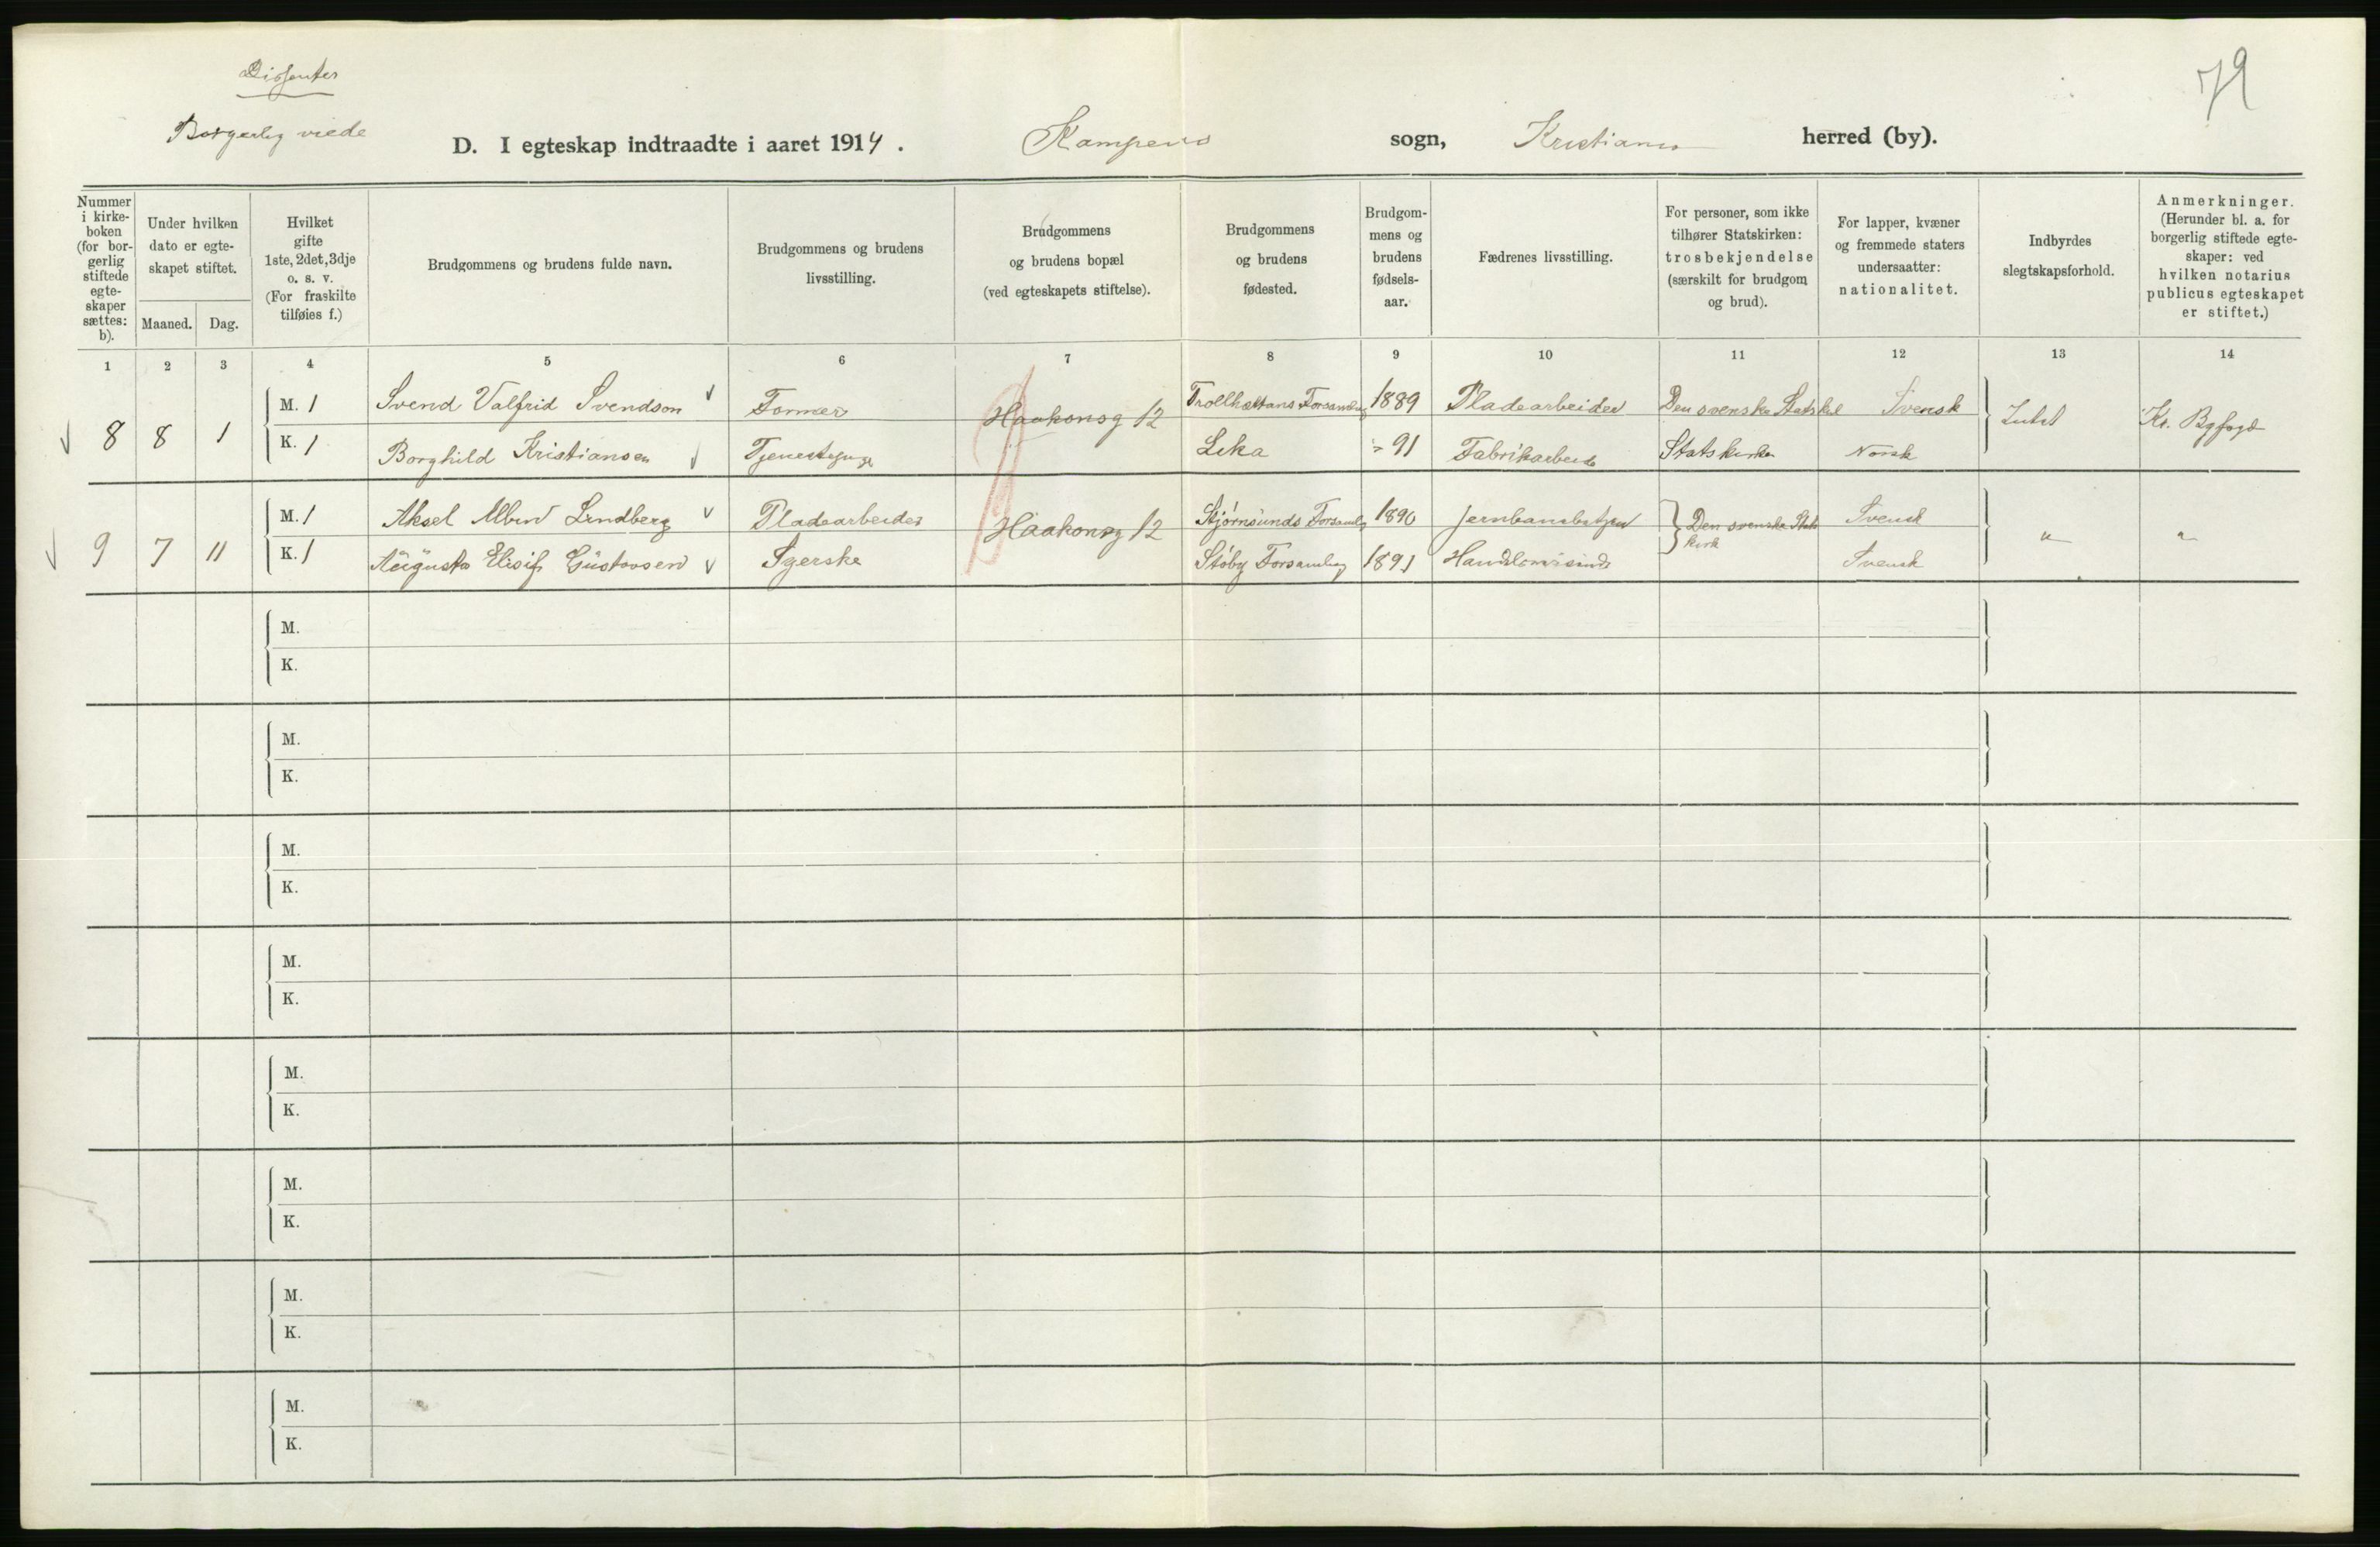 Dissenter
Borgerlig viede
79
D. I egteskap indtraadte i aaret 1914. Kampens sogn, Kristiania herred (by).
Nummer i kirke-boken (for bor-gerlig stiftede egte-skaper sættes: b).
Under hvilken dato er egte-skapet stiftet.
Maaned. Dag.
Hvilket gifte 1ste, 2det, 3dje o. s. v. (For fraskilte tilføies f.)
Brudgommens og brudens fulde navn.
Brudgommens og brudens livsstilling.
Brudgommens og brudens bopæl (ved egteskapets stiftelse).
Brudgommens og brudens fødested.
Brudgom-mens og brudens fødsels-aar.
Fædrenes livsstilling.
For personer, som ikke tilhører Statskirken: trosbekjendelse (særskilt for brudgom og brud).
For lapper, kvæner og fremmede staters undersaatter: nationalitet.
Indbyrdes slegtskapsforhold.
Anmerkninger. (Herunder bl. a. for borgerlig stiftede egte-skaper: ved hvilken notarius publicus egteskapet er stiftet.)
1 2 3 4 5 6 7 8 9 10 11 12 13 14
8 8 1 M. 1 Svend Valfrid Svendson Former Haakonsg 12 Trollhættans Forsamlg 1889 Pladearbeider Den svenske Statskirke Svensk Intet Kr. Bgfogd
K. 1 Borghild Kristiansen Tjenestepige Leka 91 Fabrikarbeider Statskirken Norsk
9 7 11 M. 1 Aksel Albin Lindberg Pladearbeider Haakonsg 12 Stjørnsunds Forsamlg 1890 Den svenske Stats Svensk " "
kirk
K. 1 Augusta Elisif Gustavsen Syerske Støby Forsamling 1891 Svensk
M.
K.
M.
K.
M.
K.
M.
K.
M.
K.
M.
K.
M.
K.
M.
K.